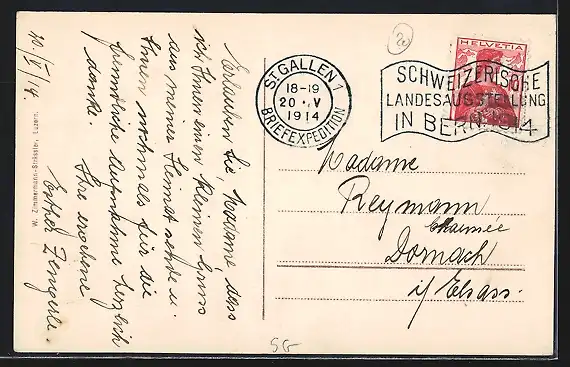 20./V./14.
Erlauben Sie, Madame dass
ich Ihnen einen kleinen Gruss
aus meiner Heimat sende u.
Ihnen nochmals für die
freundliche Aufnahme herzlich
danke.
Ihre ergebene
Esther Zengerle.
W. Zimmermann-Strässler, Luzern.
20
ST GALLEN 1
18-19
20 · V
1914
BRIEFEXPEDITION
HELVETIA
SCHWEIZERISCHE
LANDESAUSSTELLUNG
IN BERN 1914
Madame
Reymann
Chaumée
Dornach
i/ Elsass.
SG